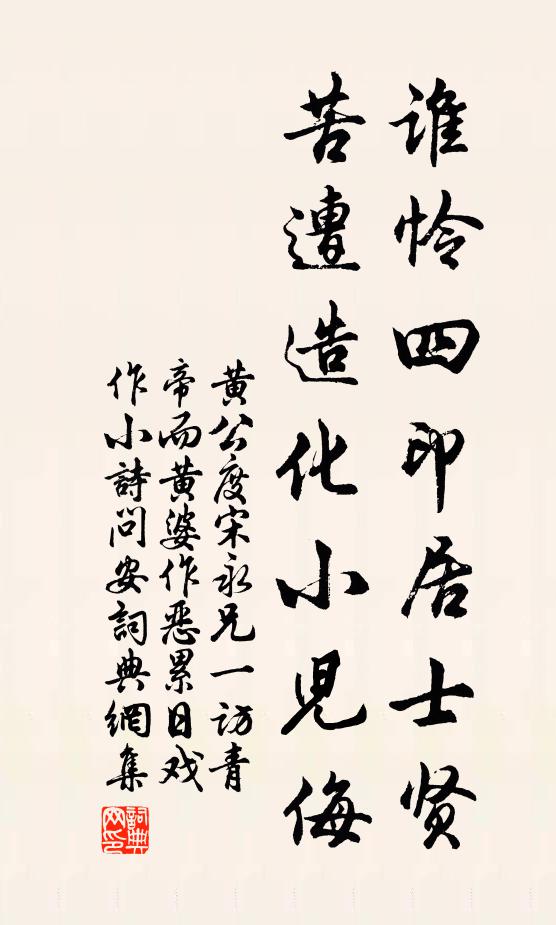 谁怜四印居士贤
苦遭造化小児侮
黄公度宋永兄一访青
帝而黄婆作恶累日戏
作小詩问安詞典網集
詞典网印